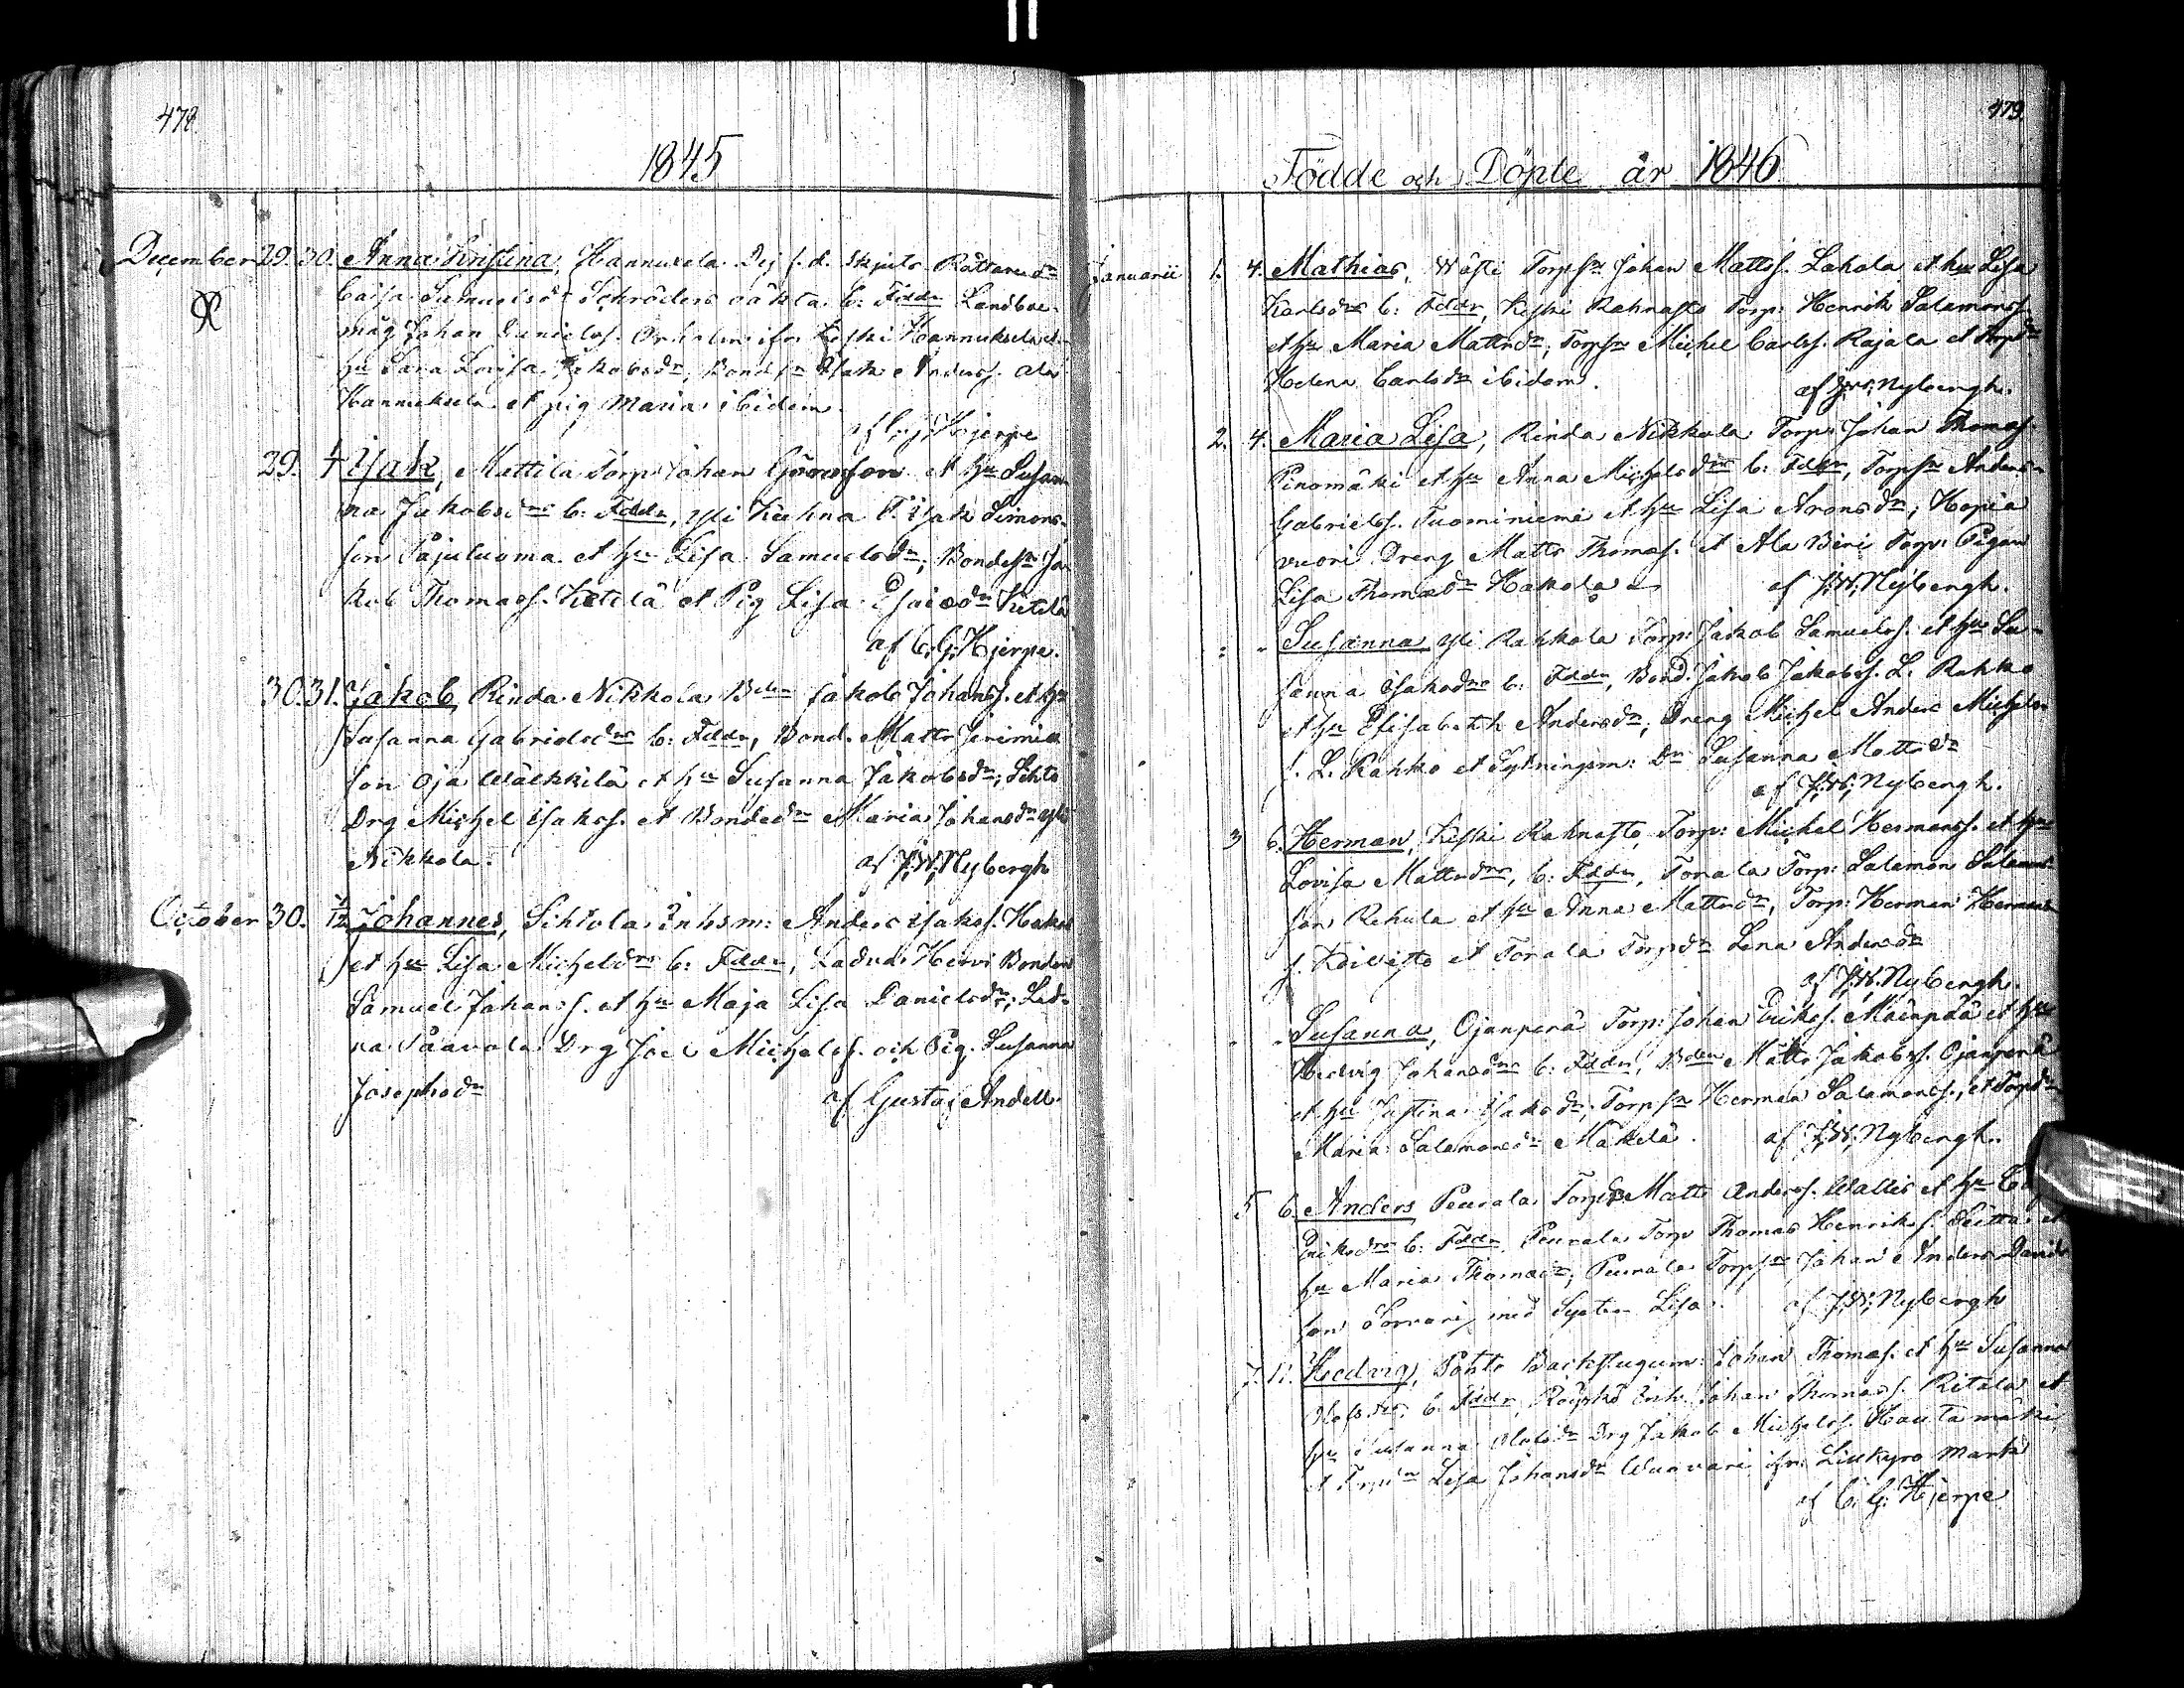 478.
1845
December 29. 30. Anna Kristina, Hannuxela Dej. f. d. Skjuts Rättare dr
Caisa Samuelsdr Schröders oäkta b: Fddr Landboe-
måg Johan Daniels. ifr Keski Hannuksela et
hu Sara Lovisa Jakobsdr, Bondsn Isak Anderss. Ala
Hannuksela et pig Maria ibidem.
af C. G. Hjerpe
29. Isak, Mattila Torp: Johan Göransson et hu Susan-
na Jakobsdrs b: Fddr, Yli Kuhna T. Isak Simons-
son Pajuluoma et hu Lisa Samuelsdr; Bondesn Ja-
kob Thomass. Ketilä et Pig Lisa Esaiasdr
af C. G. Hjerpe.
30. 31. Jakob, Rinda Nikkola Bden Jakob Johanss. et hu
Susanna Gabrielsdrs b: Fddr, Bond. Matts Jeremia
son Oja Wälkkilä et hu Susanna Jakobsdr;
Drg Michel Isakss. et Bondedr Maria Johansdr Yli
Nikkola. af J. W. Nybergh
October 30. Johannes, Sihtola Inhsm: Anders Isakss. Hakol
et hu Lisa Michelsdrs b: Fddr, Ladvd: Hervi Bonden
Samuel Johans s. et hu Maja Lisa Danielsdr; Lad-
va Paavola Drg Joel Michelss. och Pig. Susanna
Josephsdr af Gustaf Andell.
479.
Födde och Döpte år 1846.
Januarii 1. 4. Mathias, Wästi Torpsn Johan Mattss. Lakola et hu Lisa
Karlsdrs b: Fddr, Keski Rahnasto Torp: Henrik Salamonss.
et hu Maria Mattsdr; Torpsn Michel Carlss. Rajala et Torpdr
Helena Carlsdr ibidem. af J. W. Nybergh.
2. 4. Maria Lisa, Rinda Nikkola Torp: Johan Thomas.
Pinomäki et hu Anna Michelsdrs b: Fddr, Torpsn Anders
Gabrielss. Tuominiemi et hu Lisa Aronsdr; Hopia
vuori Dreng Matts Thomas. et Ala Torp: Pigan
Lisa Thomasdr Hakola af J. W. Nybergh.
: - Susanna, Yli Rahkola Torp: Jakob Samuelss. et hu Su-
sanna Isaksdrs b: Fddr, Bond. Jakob Jakobss. L. Rahko
et hu Elisabeth Andersdr; Dreng Michel Anders Michels
s. L. Rahko et Sytningsm: Dr Susanna Mattsdr
af J. W. Nybergh.
3 6. Herman, Keski Rahnasto, Torp: Michel Hermanss. et hu
Lovisa Mattsdrs, b: Fddr, Torala Torp: Salamon Salamons
son Rehula et hu Anna Mattsdr; Torp: Herman Hermans
s. Koivisto et Torala Torpdr Lena Andersdr
af J. W. Nybergh.
- - Susanna, Ojanperä Torp: Johan Erikss. Mäenpää et hu
Hedvig Johansdrs b: Fddr, Bden Matts Jakobss. Ojanperä
et hu Justina Isaksdr; Torpsn Herman Salamonss., et Torpdr
Maria Salamonsdr Mäkelä. af J. W. Nybergh.
5 6. Anders Peurala Torp: Matts Anderss. Wallis et hu
Eriksdrs b: Fddr, Peurala Torp Thomas Henrikss. et
hu Maria Thomasdr; Peurala Torpsn Johan Anders Davids
son Sorvari med Syster Lisa. af J. W. Nybergh
7. 11. Hedvig, Pohto Backstugum: Johan Thomas. et hu Susanna
Olofsdrs b: Fddr, Inh. Johan Thomass. Ritala et
hu Susanna Olofsdr Drg Jakob Michelss. Hautamäki,
et Torpdr Lisa Johansdr Wuorvari ifr: Liukyro Marks
af C. G. Hjerpe